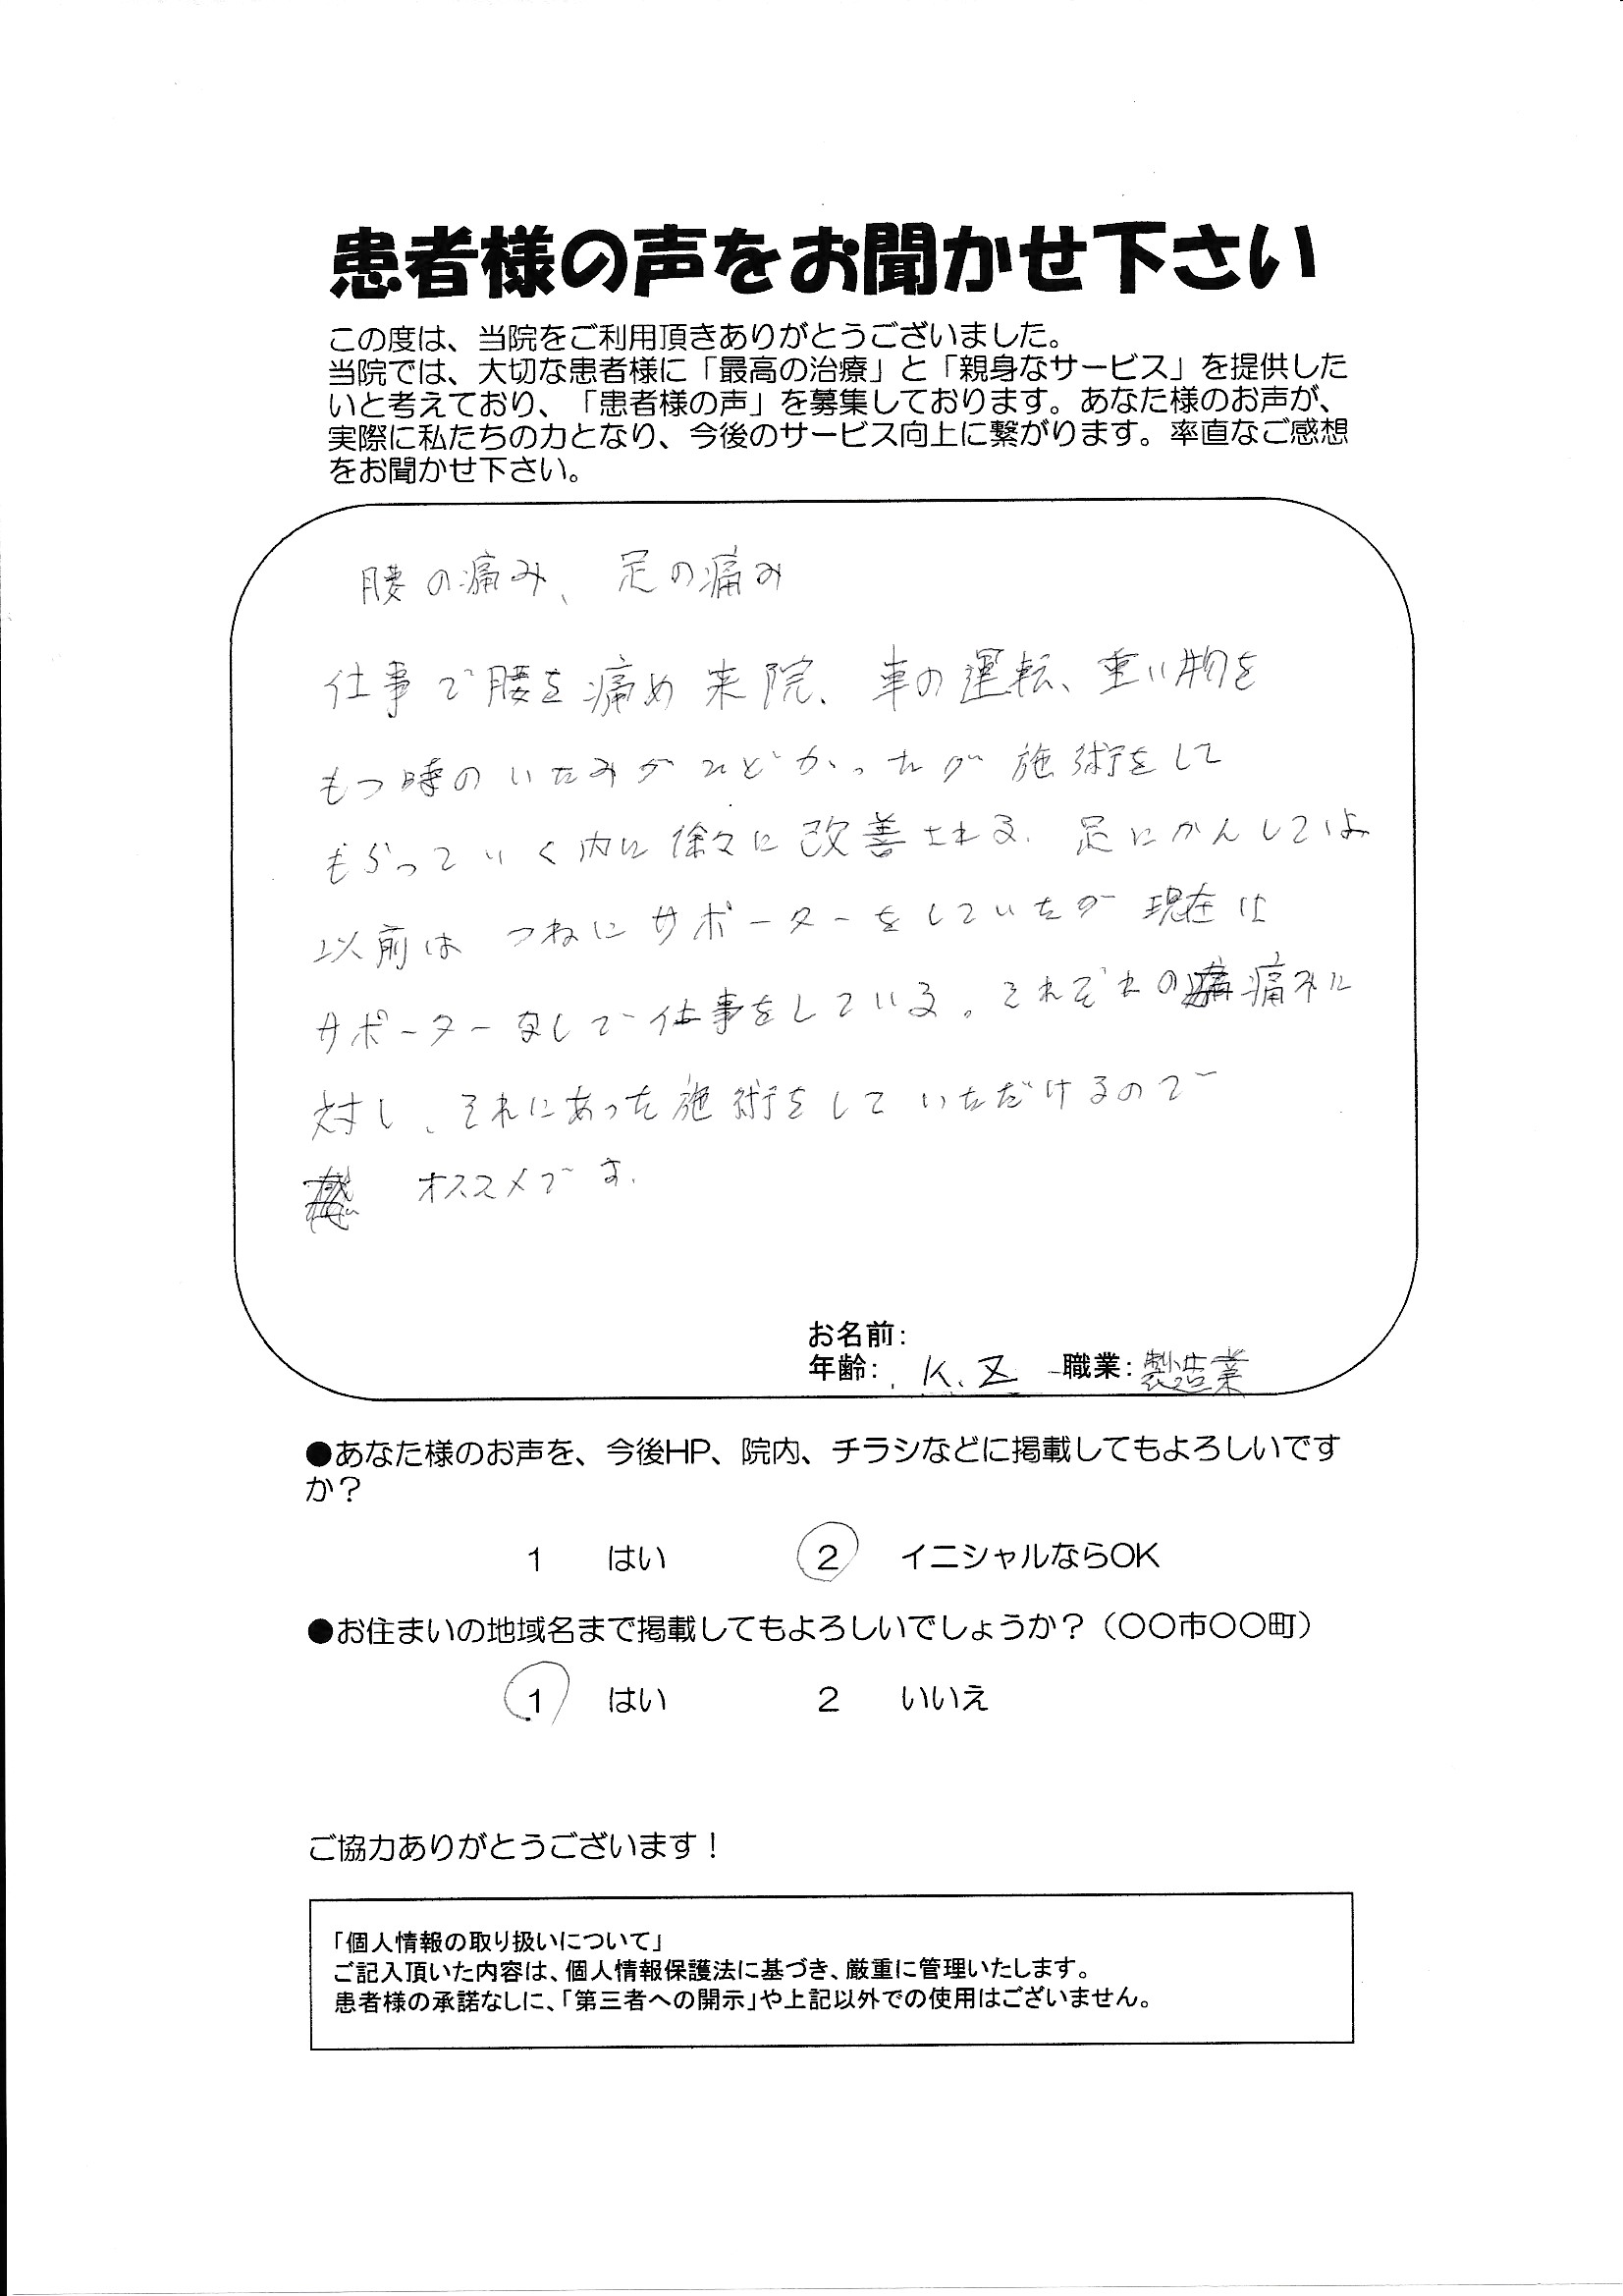 患者様の声をお聞かせ下さい
この度は、当院をご利用頂きありがとうございました。
当院では、大切な患者様に「最高の治療」と「親身なサービス」を提供した
いと考えており、「患者様の声」を募集しております。あなた様のお声が、
実際に私たちの力となり、今後のサービス向上に繋がります。率直なご感想
をお聞かせ下さい。
腰の痛み、足の痛み
仕事で腰を痛め来院、車の運転、重い物を
もつ時のいたみがひどかったが施術をして
もらっていく内に徐々に改善される。足にかんしては
以前はつねにサポーターをしていたが現在は
サポーターなしで仕事をしている。それぞれの痛みに
対し、それにあった施術をしていただけるので
オススメです。
お名前:
年齢: K.Z 職業: 製造業
●あなた様のお声を、今後HP、院内、チラシなどに掲載してもよろしいです
か?
1 はい 2 イニシャルならOK
●お住まいの地域名まで掲載してもよろしいでしょうか?(○○市○○町)
1 はい 2 いいえ
ご協力ありがとうございます!
「個人情報の取り扱いについて」
ご記入頂いた内容は、個人情報保護法に基づき、厳重に管理いたします。
患者様の承諾なしに、「第三者への開示」や上記以外での使用はございません。